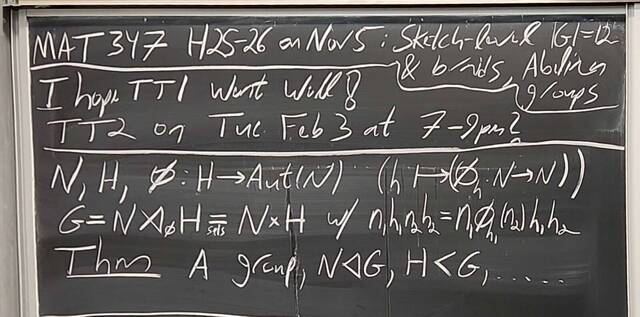 MAT 347 H25-26 on Nov 5: Sketch-level |G|=12
& braids, Abelian groups
I hope TT1 Went Well!
TT2 on Tue Feb 3 at 7-9pm?
N, H, ϕ: H→Aut(N) (h ↦ (ϕ_h: N→N))
G = N ⋊_ϕ H =_sets N × H w/ n₁h₁n₂h₂ = n₁ϕ_h₁(n₂)h₁h₂
Thm A group, N◁G, H<G, .....